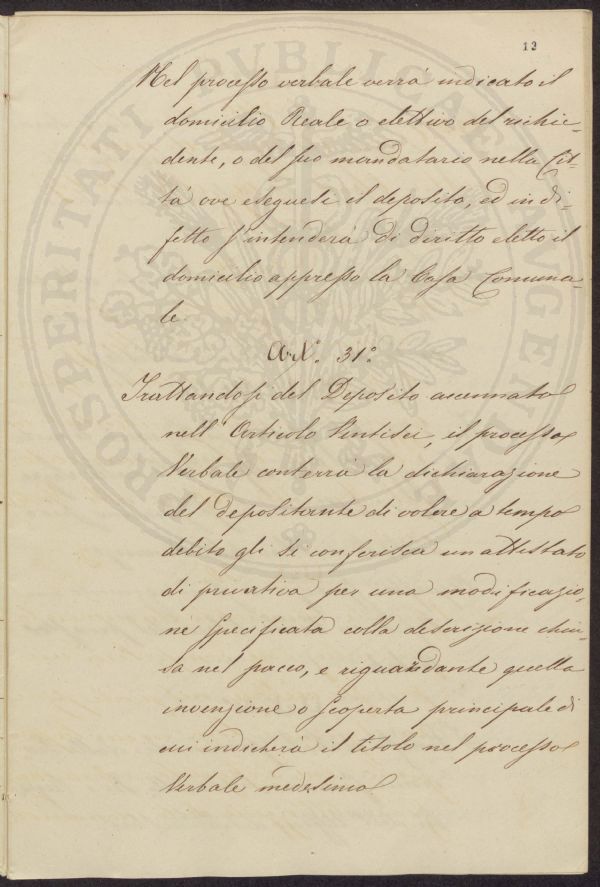 13
Nel processo verbale verrà indicato il
domicilio Reale o elettivo del richie-
dente, o del suo mandatario nella Cit-
tà ove eseguesi il deposito, ed in di-
fetto s'intenderà di diritto eletto il
domicilio appresso la Casa Comuna-
le
Art.° 31.°
Trattandosi del Deposito accennato
nell'Articolo Ventisei, il processo
Verbale conterrà la dichiarazione
del depositante di volere a tempo
debito gli si conferisca un attestato
di privativa per una modificazio-
ne specificata colla descrizione chiu-
sa nel pacco, e riguardante quella
invenzione o scoperta principale di
cui indicherà il titolo nel processo
Verbale medesimo
PROSPERITATI PVBLICAE AVGENDAE